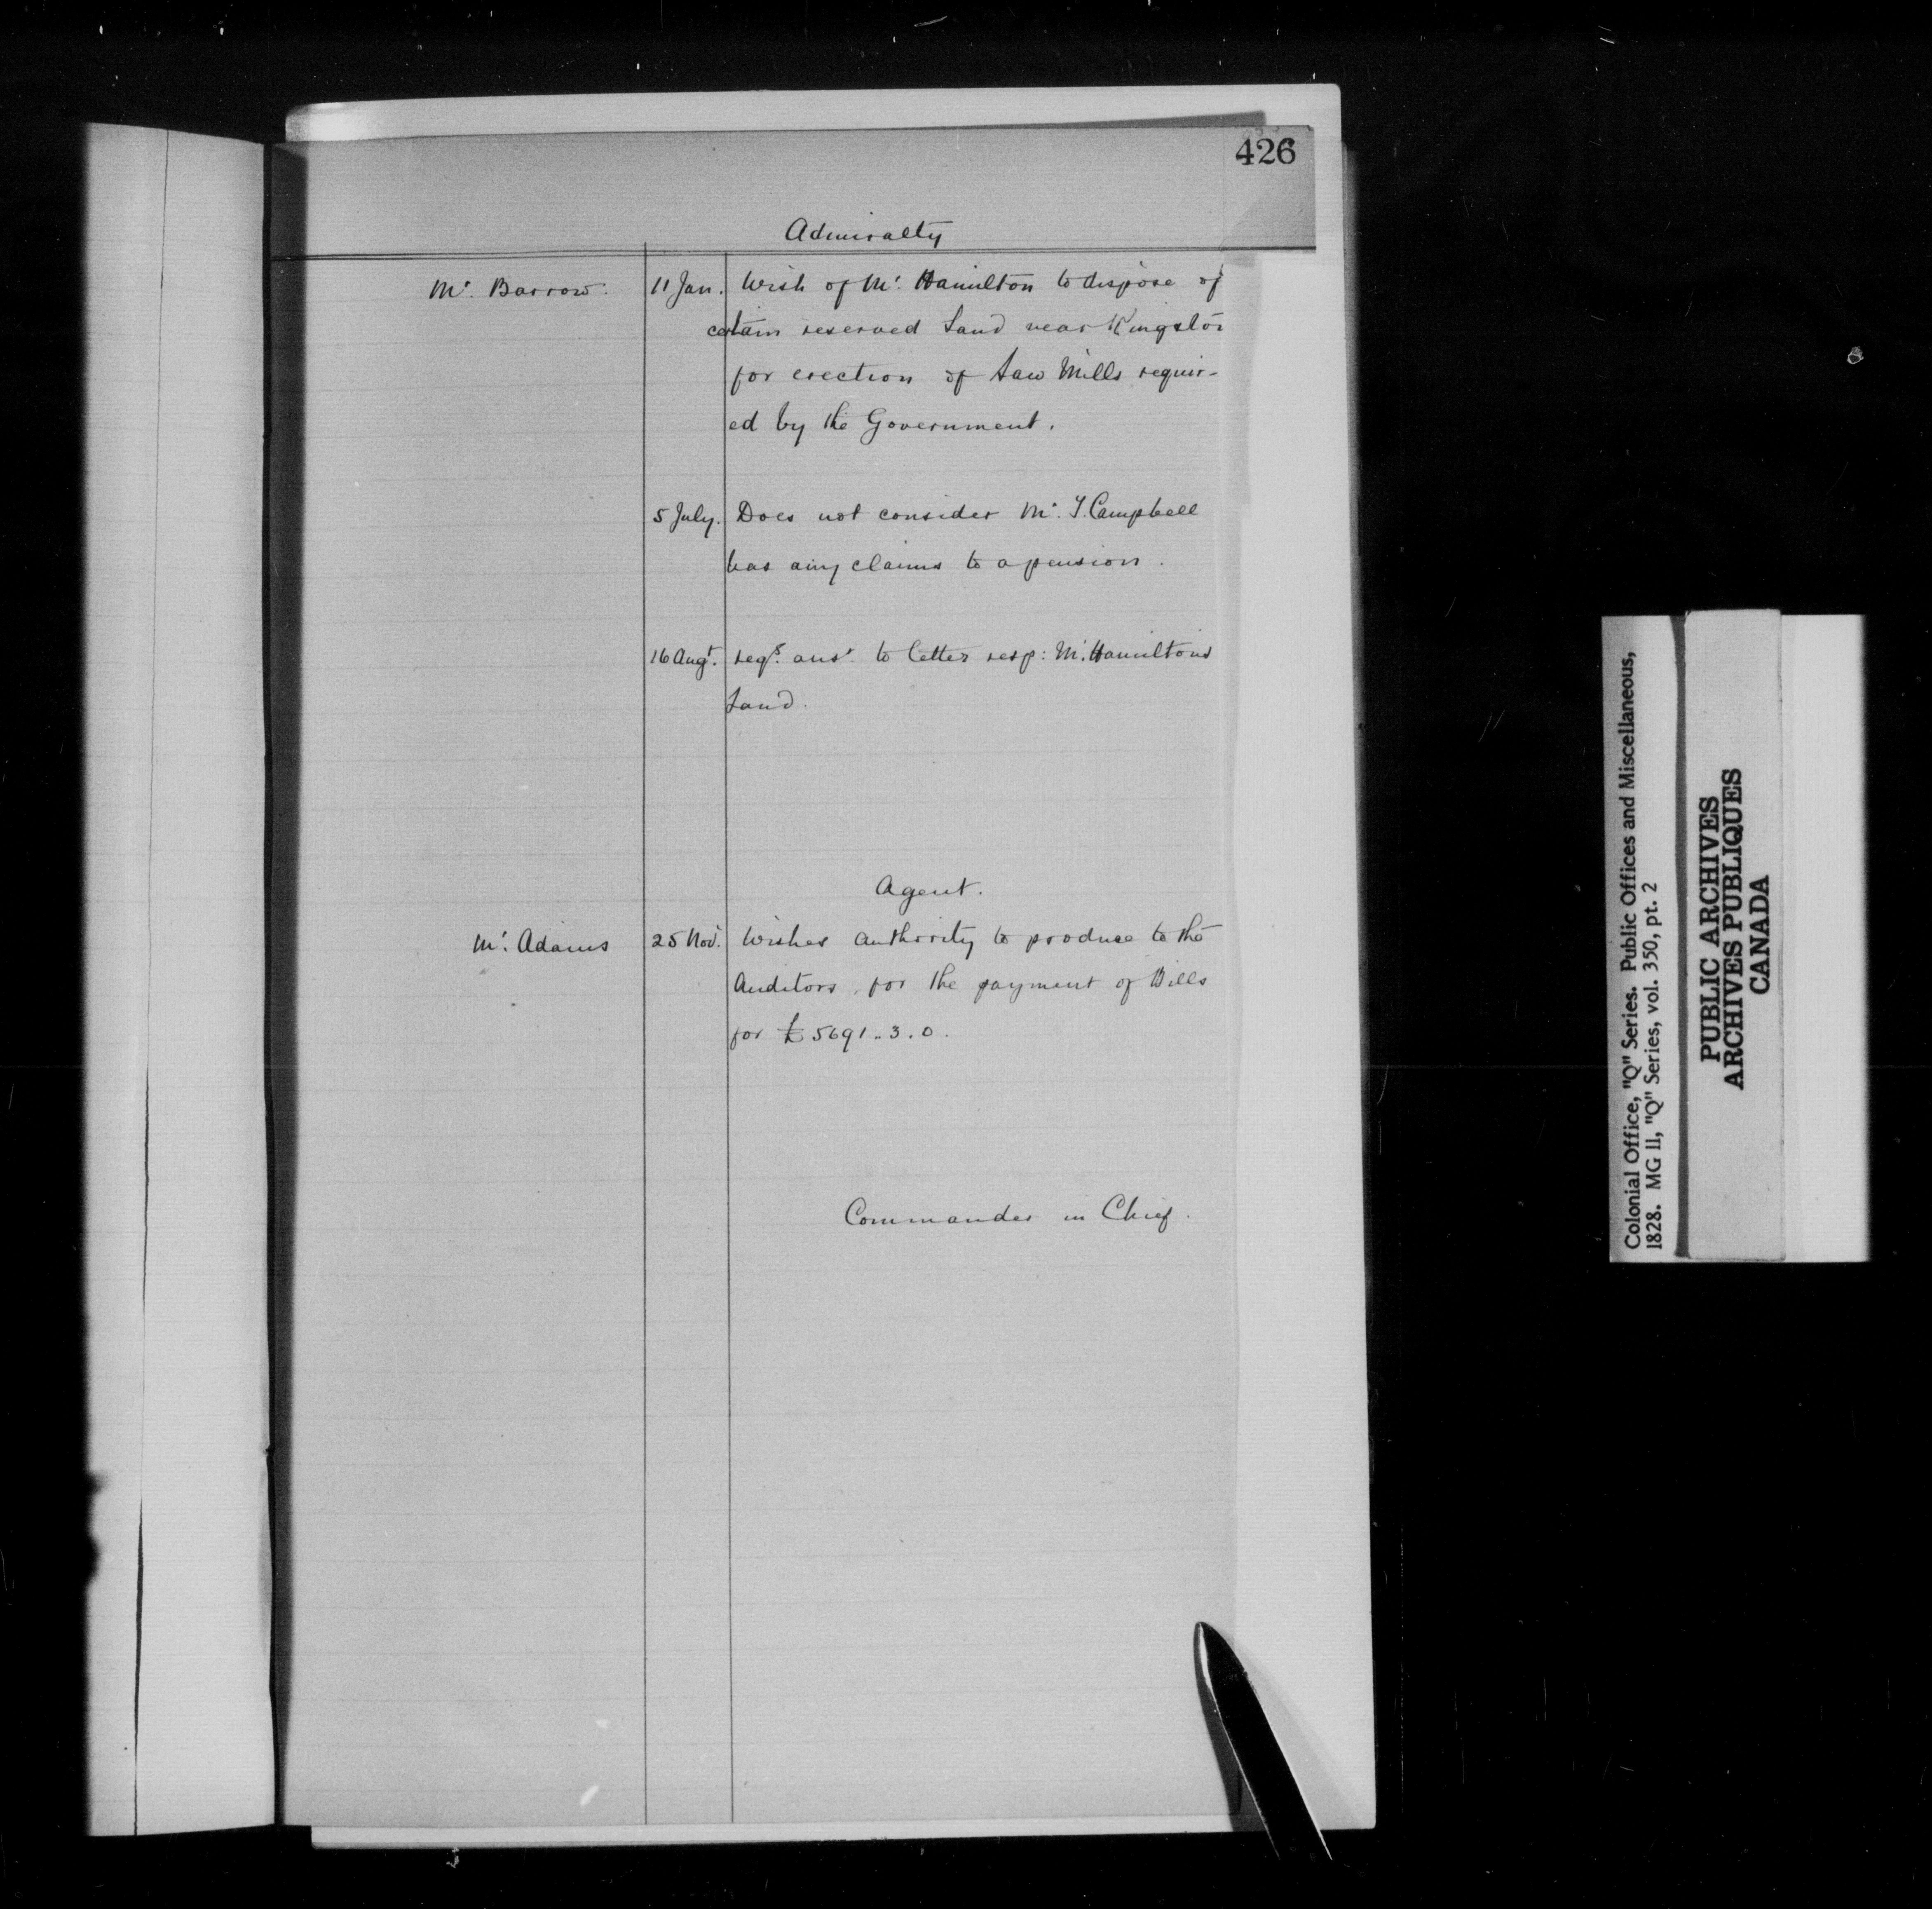 426
Admiralty
Mr. Barrow. 11 Jan. Wish of Mr. Hamilton to dispose of
certain reserved Land near Kingston
for erection of Saw Mills requir-
ed by the Government.
5 July. Does not consider Mr. T. Campbell
has any claims to a pension.
16 Augt. reqs. ansr. to letter resp: Mr. Hamiltons
Land.
Agent.
Mr. Adams 25 Nov. Wishes authority to produce to the
Auditors, for the payment of Bills
for £5691..3.0.
Commander in Chief.
Colonial Office, "Q" Series. Public Offices and Miscellaneous,
1828. MG 11, "Q" Series, vol. 350, pt. 2
PUBLIC ARCHIVES
ARCHIVES PUBLIQUES
CANADA